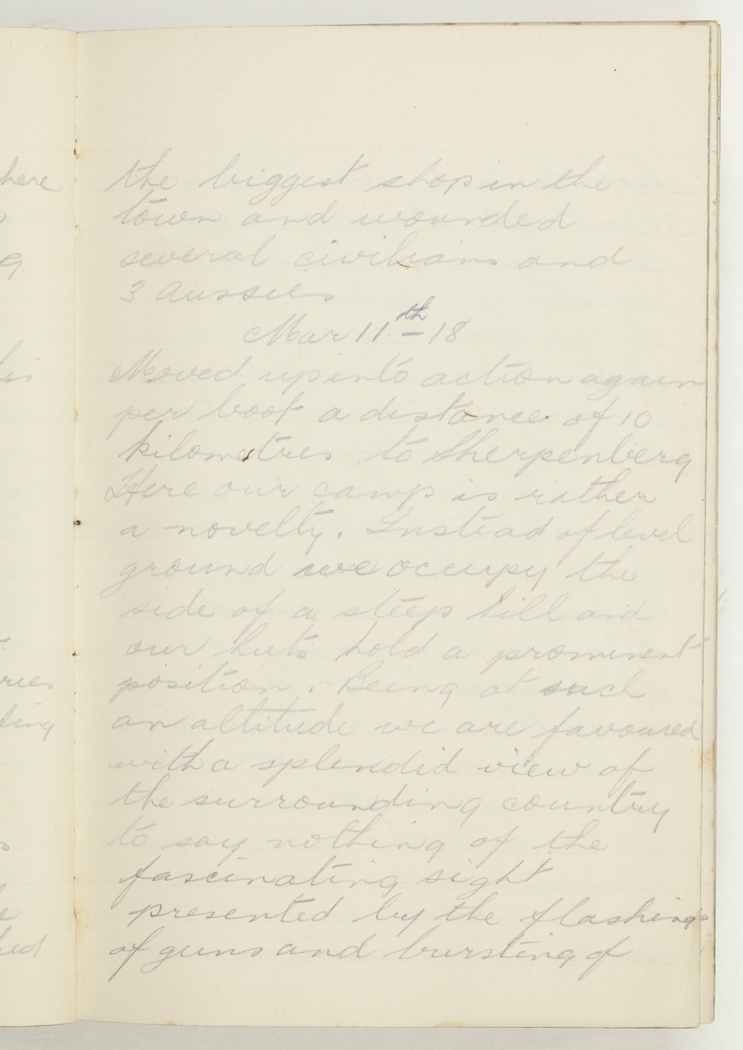 here
the biggest shop in the
town and wounded
several civilians and
3 Aussies
Mar 11th - 18
Moved up into action again
per boot a distance of 10
kilometres to Sherpenberg
Here our camp is rather
a novelty. Instead of level
ground we occupy the
side of a steep hill and
our huts hold a prominent
position. Being at such
an altitude we are favoured
with a splendid view of
the surrounding country
to say nothing of the
fascinating sight
presented by the flashing
of guns and bursting of